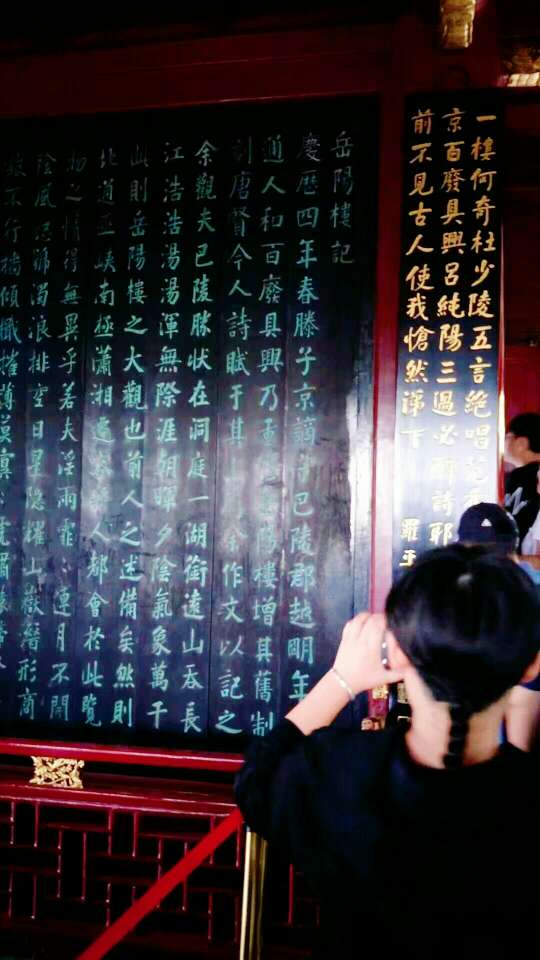 一樓何奇杜少陵五言絶唱
京百廢具興呂純陽三過必醉詩耶
前不見古人使我愴然涕下
岳陽樓記
慶歷四年春滕子京謫守巴陵郡越明年
通人和百廢具興乃重陽樓增其舊制
刻唐賢今人詩賦于其余作文以記之
余觀夫巴陵勝狀在洞庭一湖銜遠山吞長
江浩浩湯湯渾無際涯朝暉夕陰氣象萬千
此則岳陽樓之大觀也前人之述備矣然則
北通巫峽南極瀟湘遷客騷人都會於此覽
物之情得無異乎若夫淫雨霏〻連月不開
陰風怒號濁浪排空日星隱耀山嶽潛形商
旅不行檣傾檝摧薄暮冥〻虎嘯猿啼